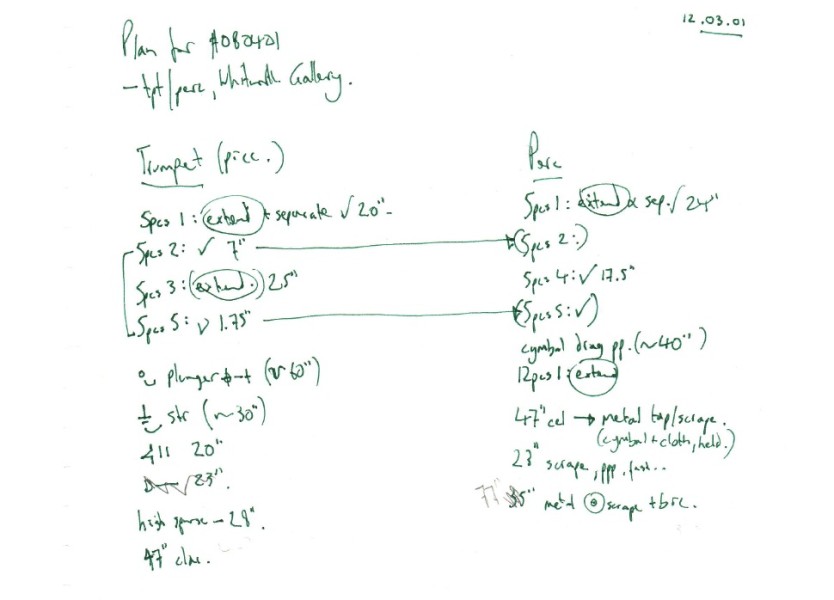 12.03.01
Plan for A080401
– tpt/perc, Whitworth Gallery.
Trumpet (picc.)
5pcs 1: extend + separate √ 20"
5pcs 2: √ 7"
5pcs 3: (extend.) 25"
5pcs 5: √ 1.75"
plunger (~60")
str (~30")
20"
83".
high sparse – 28".
47"
Perc
5pcs 1: extend & sep. √ 24"
(5pcs 2:)
5pcs 4: √ 17.5"
(5pcs 5: √)
cymbal drag pp. (~40")
12pcs 1: extend
47" cel → metal tap/scrape.
(cymbal + cloth, held.)
23" scrape, ppp, fast..
77" metal scrape +